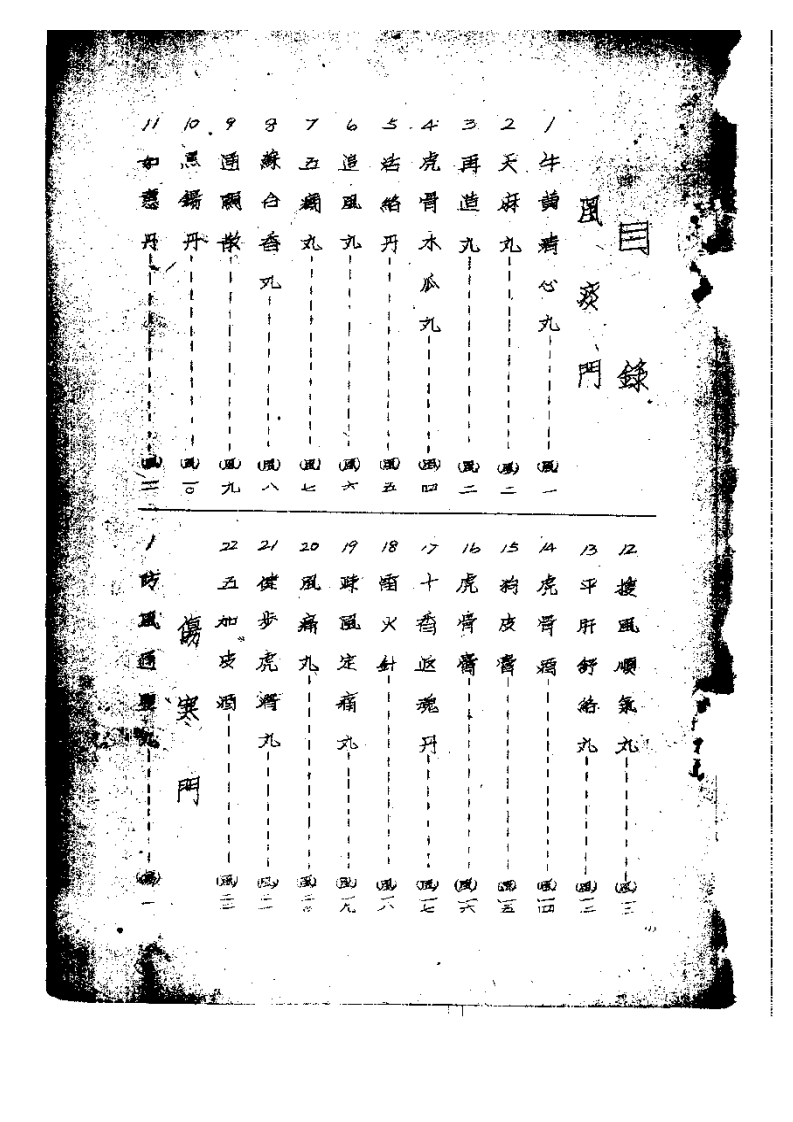 目錄
風痰門
1 牛黃清心丸 (風)一
2 天麻丸 (風)二
3 再造丸 (風)二
4 虎骨木瓜丸 (風)四
5 活絡丹 (風)五
6 追風丸 (風)六
7 五癇丸 (風)七
8 蘇合香丸 (風)八
9 通關散 (風)九
10 黑錫丹 (風)一〇
11 如意丹 (風)一一
12 搜風順氣丸 (風)一三
13 平肝舒絡丸 (風)一二
14 虎骨酒 (風)一四
15 狗皮膏 (風)一五
16 虎骨膏 (風)一六
17 十香返魂丹 (風)一七
18 雷火針 (風)一八
19 疎風定痛丸 (風)一九
20 風痛丸 (風)二〇
21 健步虎潛丸 (風)二一
22 五加皮酒 (風)二二
傷寒門
1 防風通聖丸 (傷)一